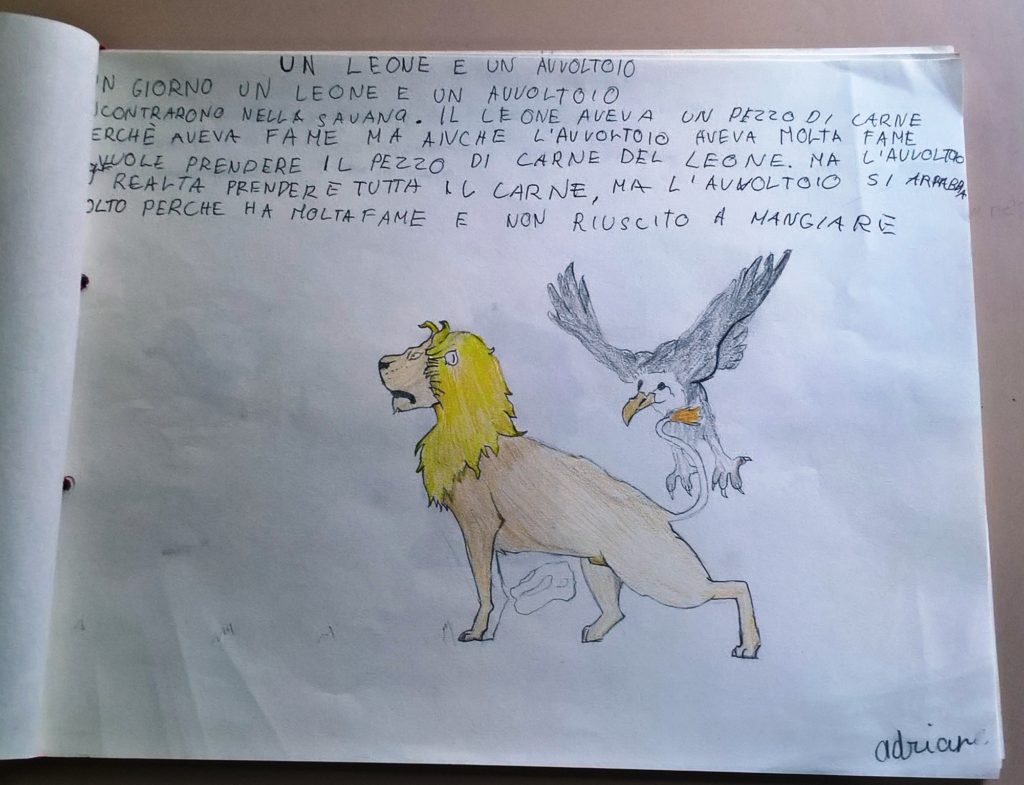 UN LEONE E UN AVVOLTOIO
UN GIORNO UN LEONE E UN AVVOLTOIO
NCONTRARONO NELLA SAVANA. IL LEONE AVEVA UN PEZZO DI CARNE
ERCHÈ AVEVA FAME MA ANCHE L'AVVOLTOIO AVEVA MOLTA FAME
VUOLE PRENDERE IL PEZZO DI CARNE DEL LEONE. MA L'AVVOLTOIO
REALTA PRENDERE TUTTA IL CARNE, MA L'AVVOLTOIO SI
OLTO PERCHE HA MOLTA FAME E NON RIUSCITO A MANGIARE
adrian